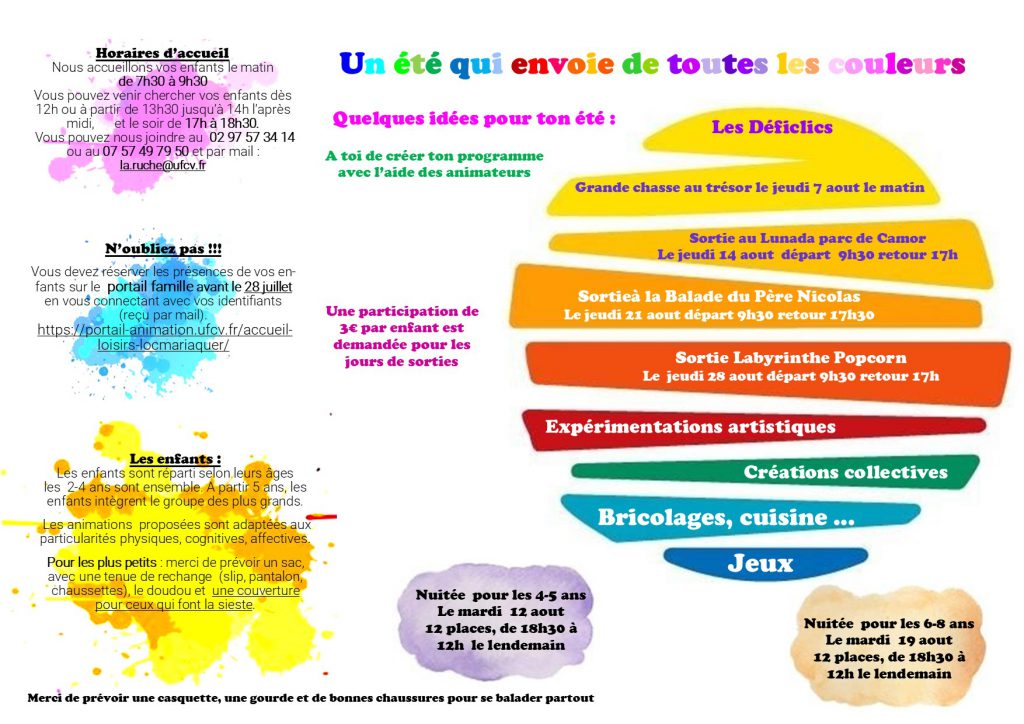 Horaires d'accueil
Nous accueillons vos enfants le matin
de 7h30 à 9h30
Vous pouvez venir chercher vos enfants dès
12h ou à partir de 13h30 jusqu'à 14h l'après
midi, et le soir de 17h à 18h30.
Vous pouvez nous joindre au 02 97 57 34 14
ou au 07 57 49 79 50 et par mail :
la.ruche@ufcv.fr
N'oubliez pas !!!
Vous devez réserver les présences de vos en-
fants sur le portail famille avant le 28 juillet
en vous connectant avec vos identifiants
(reçu par mail).
https://portail-animation.ufcv.fr/accueil-
loisirs-locmariaquer/
Les enfants :
Les enfants sont réparti selon leurs âges
les 2-4 ans sont ensemble. A partir 5 ans, les
enfants intègrent le groupe des plus grands.
Les animations proposées sont adaptées aux
particularités physiques, cognitives, affectives.
Pour les plus petits : merci de prévoir un sac,
avec une tenue de rechange (slip, pantalon,
chaussettes), le doudou et une couverture
pour ceux qui font la sieste.
Un été qui envoie de toutes les couleurs
Quelques idées pour ton été :
A toi de créer ton programme
avec l'aide des animateurs
Une participation de
3€ par enfant est
demandée pour les
jours de sorties
Les Déficlics
Grande chasse au trésor le jeudi 7 aout le matin
Sortie au Lunada parc de Camor
Le jeudi 14 aout départ 9h30 retour 17h
Sortieà la Balade du Père Nicolas
Le jeudi 21 aout départ 9h30 retour 17h30
Sortie Labyrinthe Popcorn
Le jeudi 28 aout départ 9h30 retour 17h
Expérimentations artistiques
Créations collectives
Bricolages, cuisine ...
Jeux
Nuitée pour les 4-5 ans
Le mardi 12 aout
12 places, de 18h30 à
12h le lendemain
Nuitée pour les 6-8 ans
Le mardi 19 aout
12 places, de 18h30 à
12h le lendemain
Merci de prévoir une casquette, une gourde et de bonnes chaussures pour se balader partout